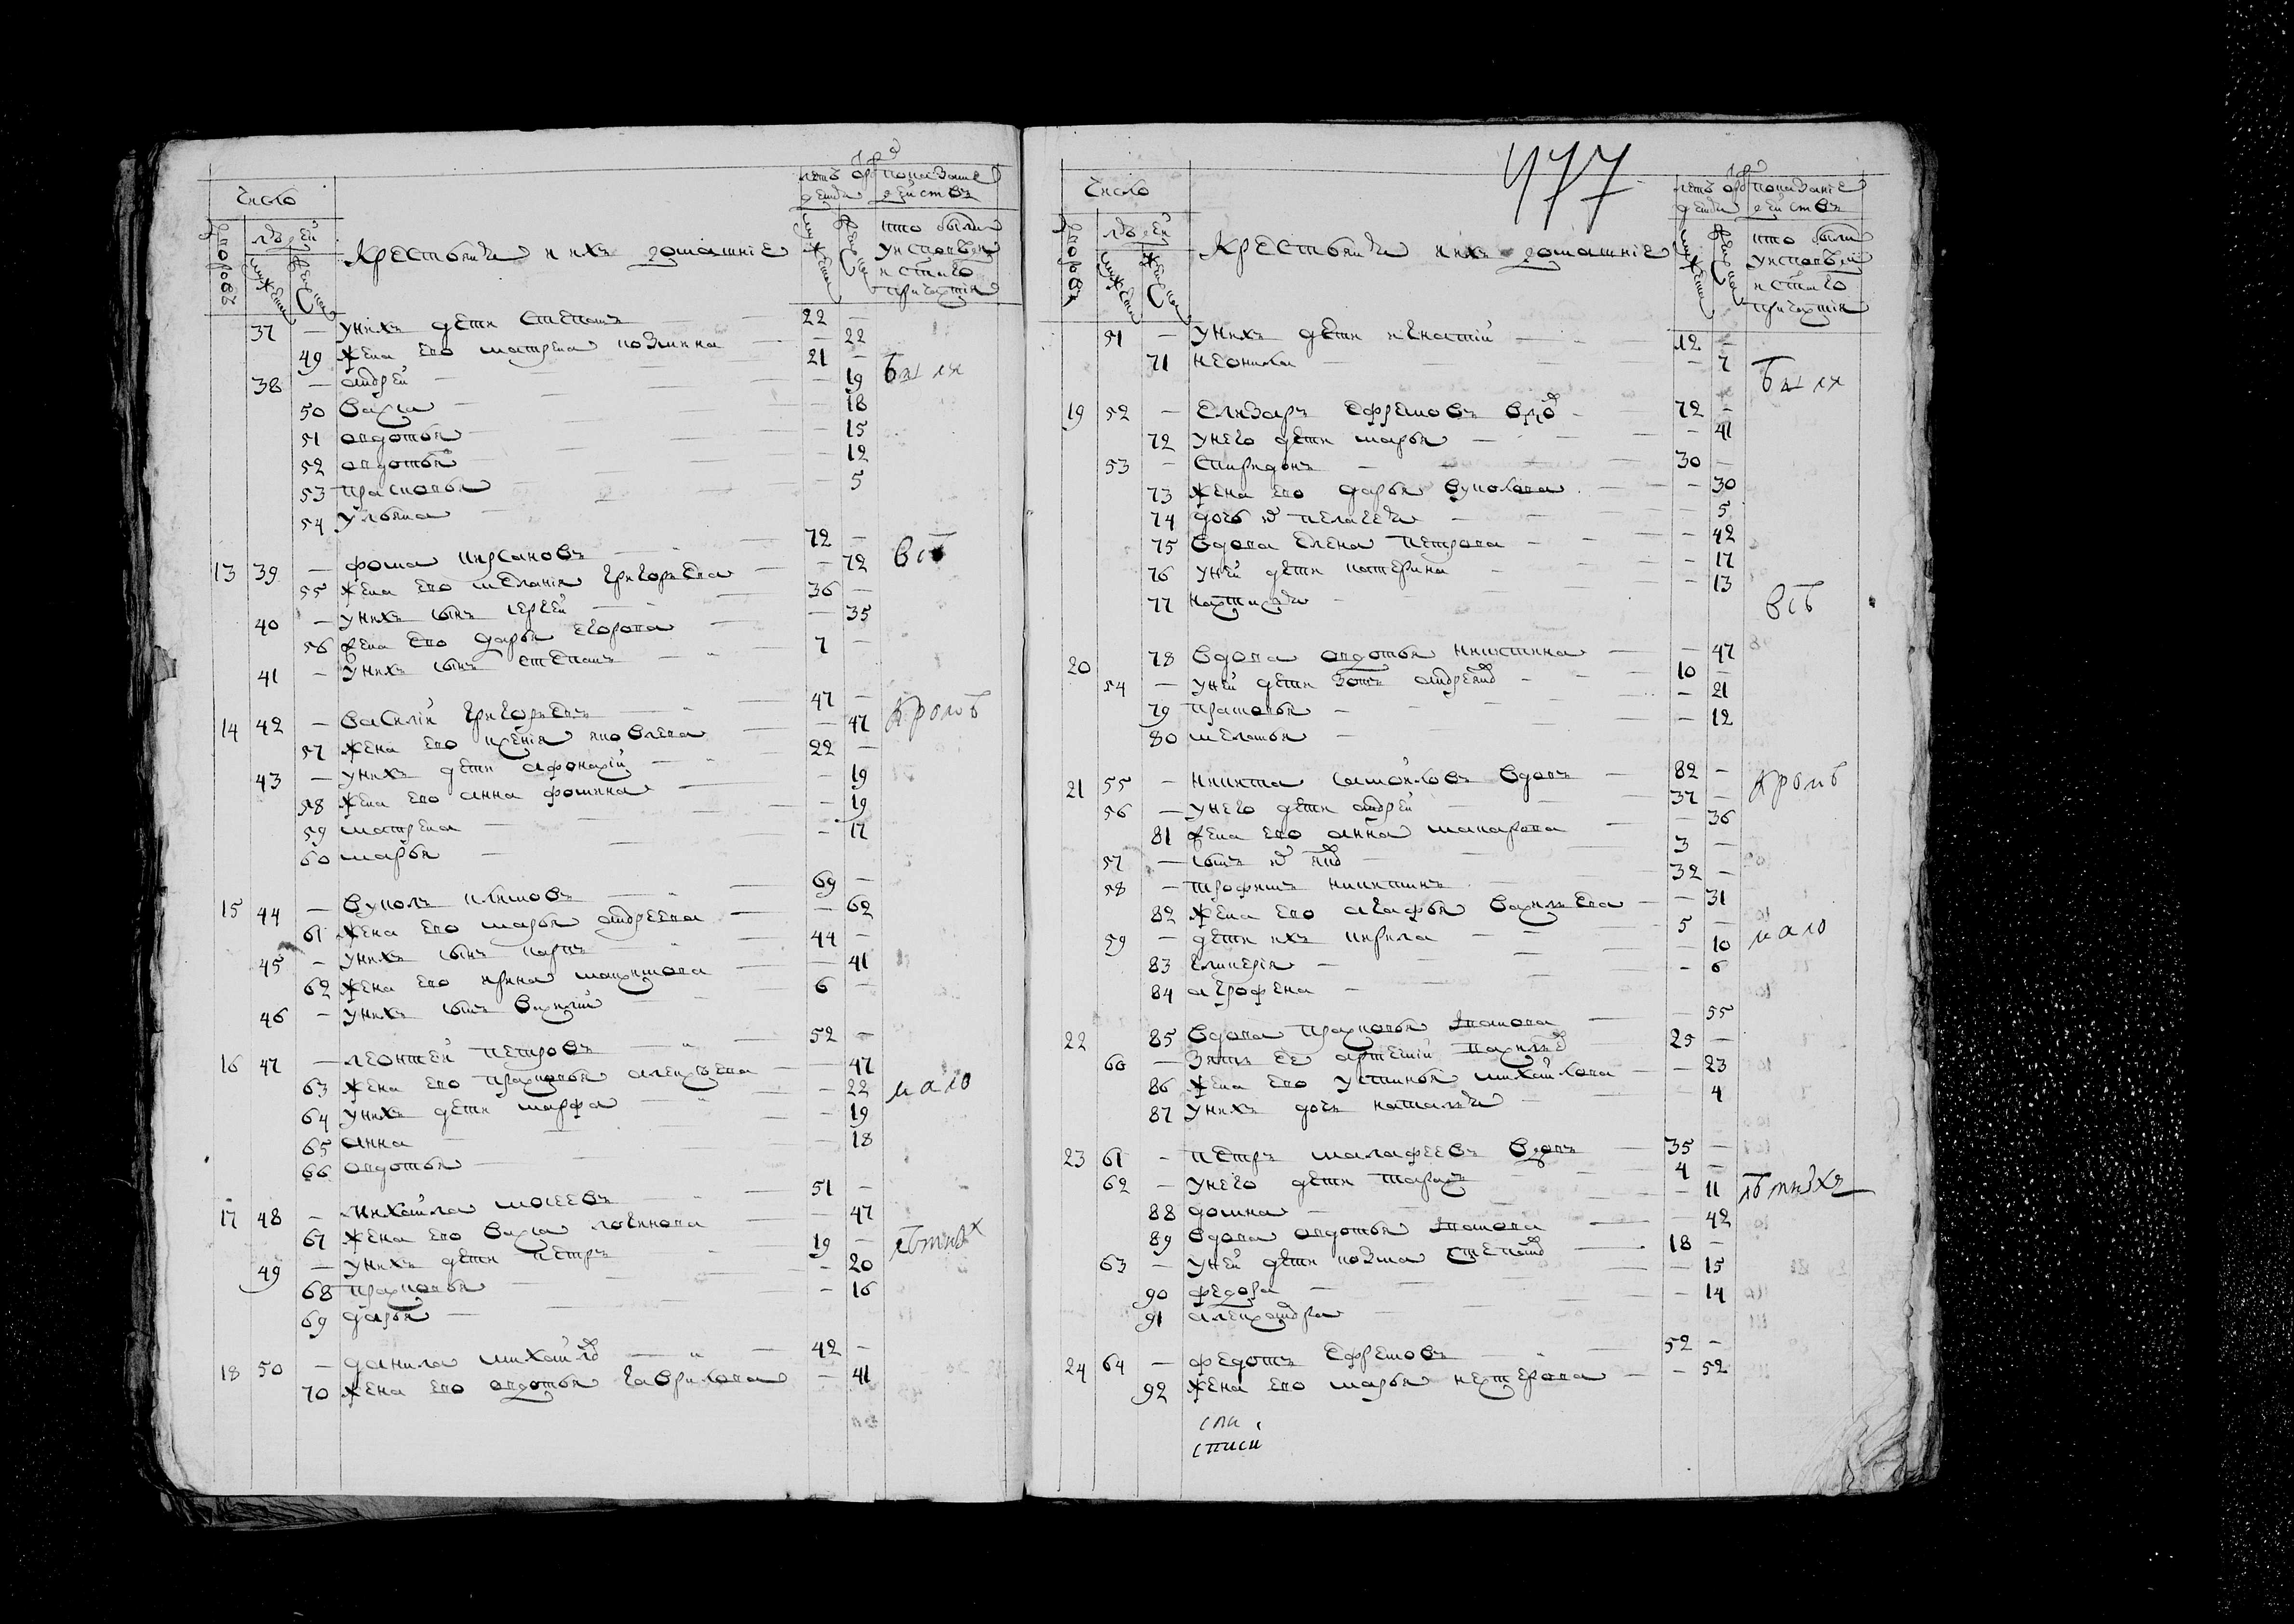 Число
дворовъ
людей
мужеска
женска
Крестьяня и ихъ домашніе
лѣтъ отъ рожденія
мужеска
женска
показаніе действъ
кто были у исповѣди и с͠таго причастія
37 — у нихъ дети Степанъ — 22 —
49 жена его матрена козмина — — 22
38 — андрей — 21 — были
50 васса — — 19
51 авдотья — — 18
52 авдотья — — 15
53 прасковья — — 12
54 ульяна — — 5
13 39 — фома кирсановъ — 72 — всѣ
55 жена его меланія григорьева — — 72
40 — у нихъ сынъ сергей — 36 —
56 жена его дарья егорова — — 35
41 — у нихъ сынъ степанъ — 7 —
14 42 — василій григорьевъ — 47 — кромѣ
57 жена его ксенія яковлева — — 47
43 — у нихъ дети афонасій — 22 —
58 жена его анна фомина — — 19
59 матрена — — 19
60 марья — — 17
15 44 — вуколъ климовъ — 69 —
61 жена его марья андреева — — 62
45 — у нихъ сынъ карпъ — 44 —
62 жена его ирина максимова — — 41
46 — у нихъ сынъ василий — 6 —
16 47 — леонтей петровъ — 52 —
63 жена его прасковья алексеева — — 47
64 у нихъ дети марфа — — 22 мало
65 анна — — 19
66 авдотья — — 18
17 48 — михайла мосеевъ — 51 —
67 жена его васса логинова — — 47
49 — у нихъ дети петръ — 19 — лѣтныхъ
68 прасковья — — 20
69 дарья — — 16
18 50 — данила михайловъ — 42 —
70 жена его авдотья гаврилова — — 41
477
Число
дворовъ
людей
мужеска
женска
Крестьяня и ихъ домашніе
лѣтъ отъ рожденія
мужеска
женска
показаніе действъ
кто были у исповѣди и с͠таго причастія
51 — у нихъ дети игнатій — 12 —
71 неонила — — 7 были
19 52 — Елизаръ Ефремовъ вдовъ — 72 —
72 у него дети марья — — 41
53 — спиридонъ — 30 —
73 жена его дарья вуколова — — 30
74 дочь их пелагея — — 5
75 вдова елена петрова — — 42
76 у ней дети катерина — — 17
77 настасья — — 13 всѣ
20 78 вдова авдотья никитина — — 47
54 — у ней дети зотъ андреевъ — 10 —
79 прасковья — — 21
80 меланья — — 12
21 55 — никита самойловъ вдовъ — 82 — кромѣ
56 — у него дети андрей — 37 —
81 жена его анна макарова — — 36
57 — сынъ их — 3 —
58 — трофимъ никитинъ — 32 —
82 жена его агафья васильева — — 31
59 — дети ихъ кирила — 5 — мало
83 гликерія — — 10
84 агрофена — — 6
22 85 вдова прасковья — — 55
60 — зять ее артемій — 25 —
86 жена его устинья михайлова — — 23
87 у нихъ дочь наталья — — 4
23 61 — петръ малафеевъ вдовъ — 35 —
62 — у него дети тарасъ — 4 — лѣтныхъ
88 домна — — 11
89 вдова авдотья — — 42
63 — у ней дети козма степановъ — 18 —
90 федора — — 15
91 александра — — 14
24 64 — федотъ Ефремовъ — 52 —
92 жена его марья нестерова — — 52